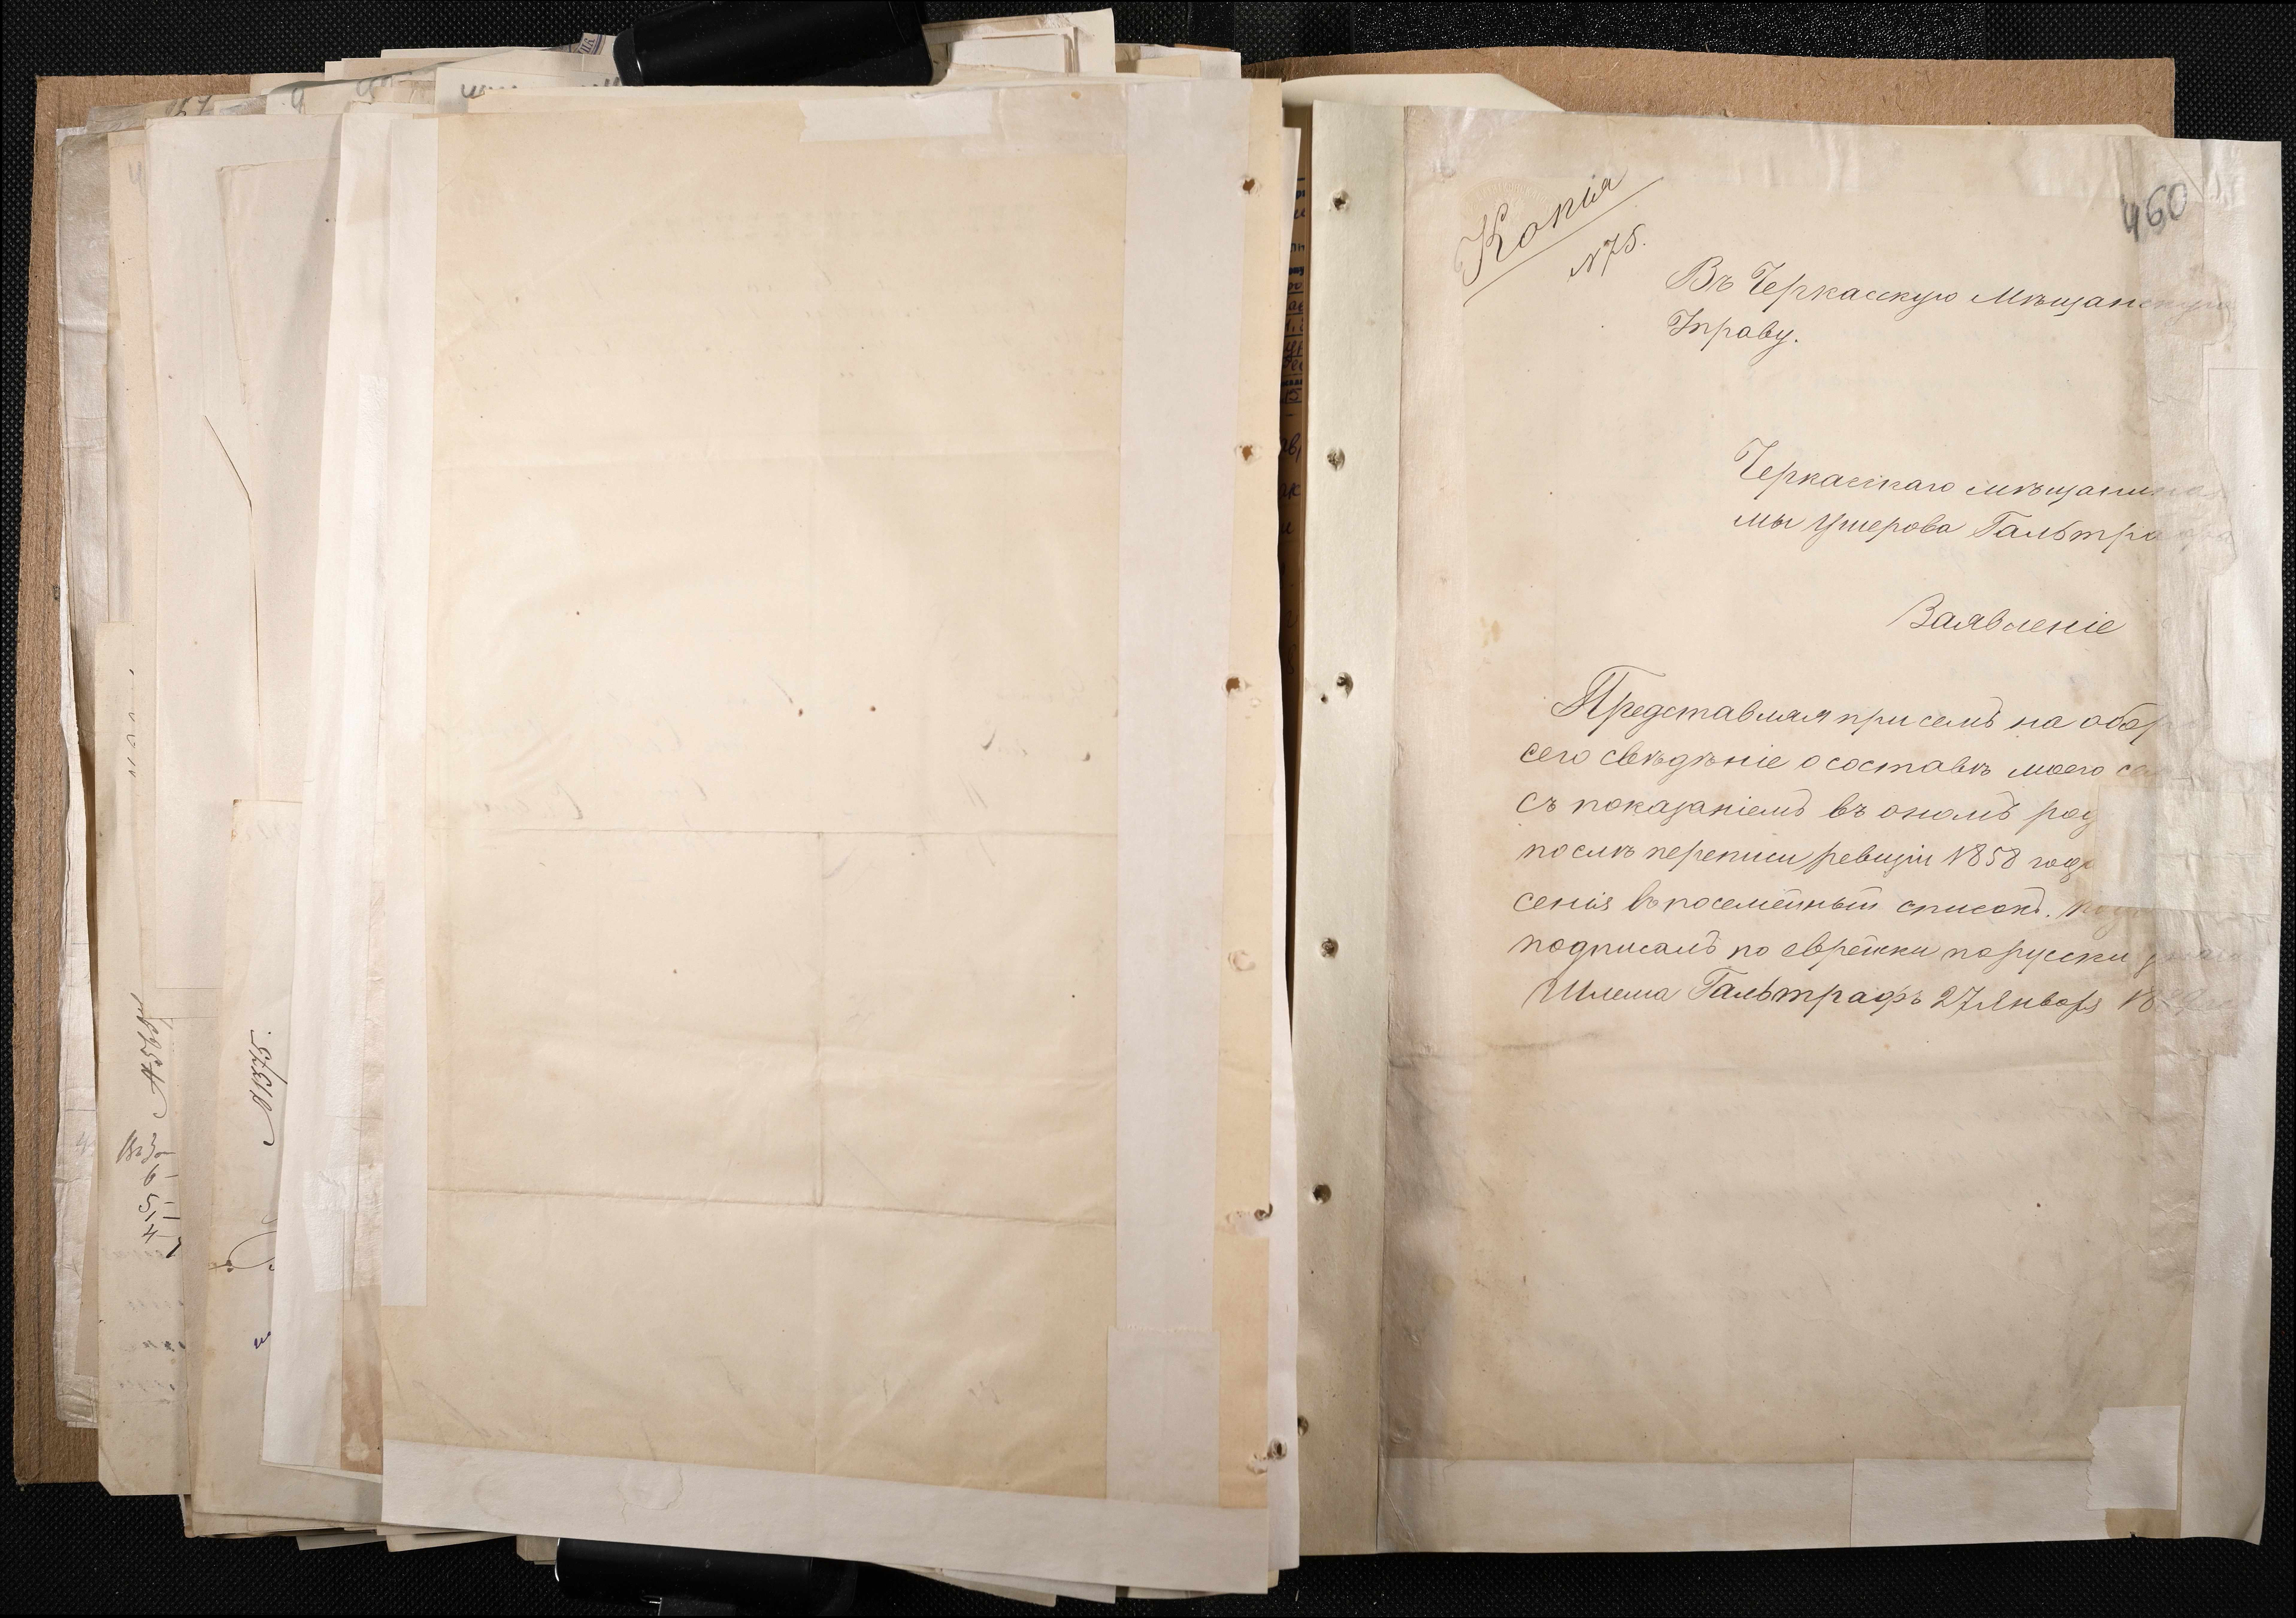 460
Копія
№75.
Въ Черкасскую Мѣщанскую
Управу.
Черкасскаго мѣщанина
мы Ушерова Гальтра
Заявленіе
Представляя при семъ на обор
сего свѣдѣніе о составѣ моего се
съ показаніемъ въ ономъ род
послѣ переписи ревизіи 1858 года
сенія въ посемейный списокъ.
подписалъ по еврейски порусски
Шлема Гальтрафъ 27 Января 18
№1375.